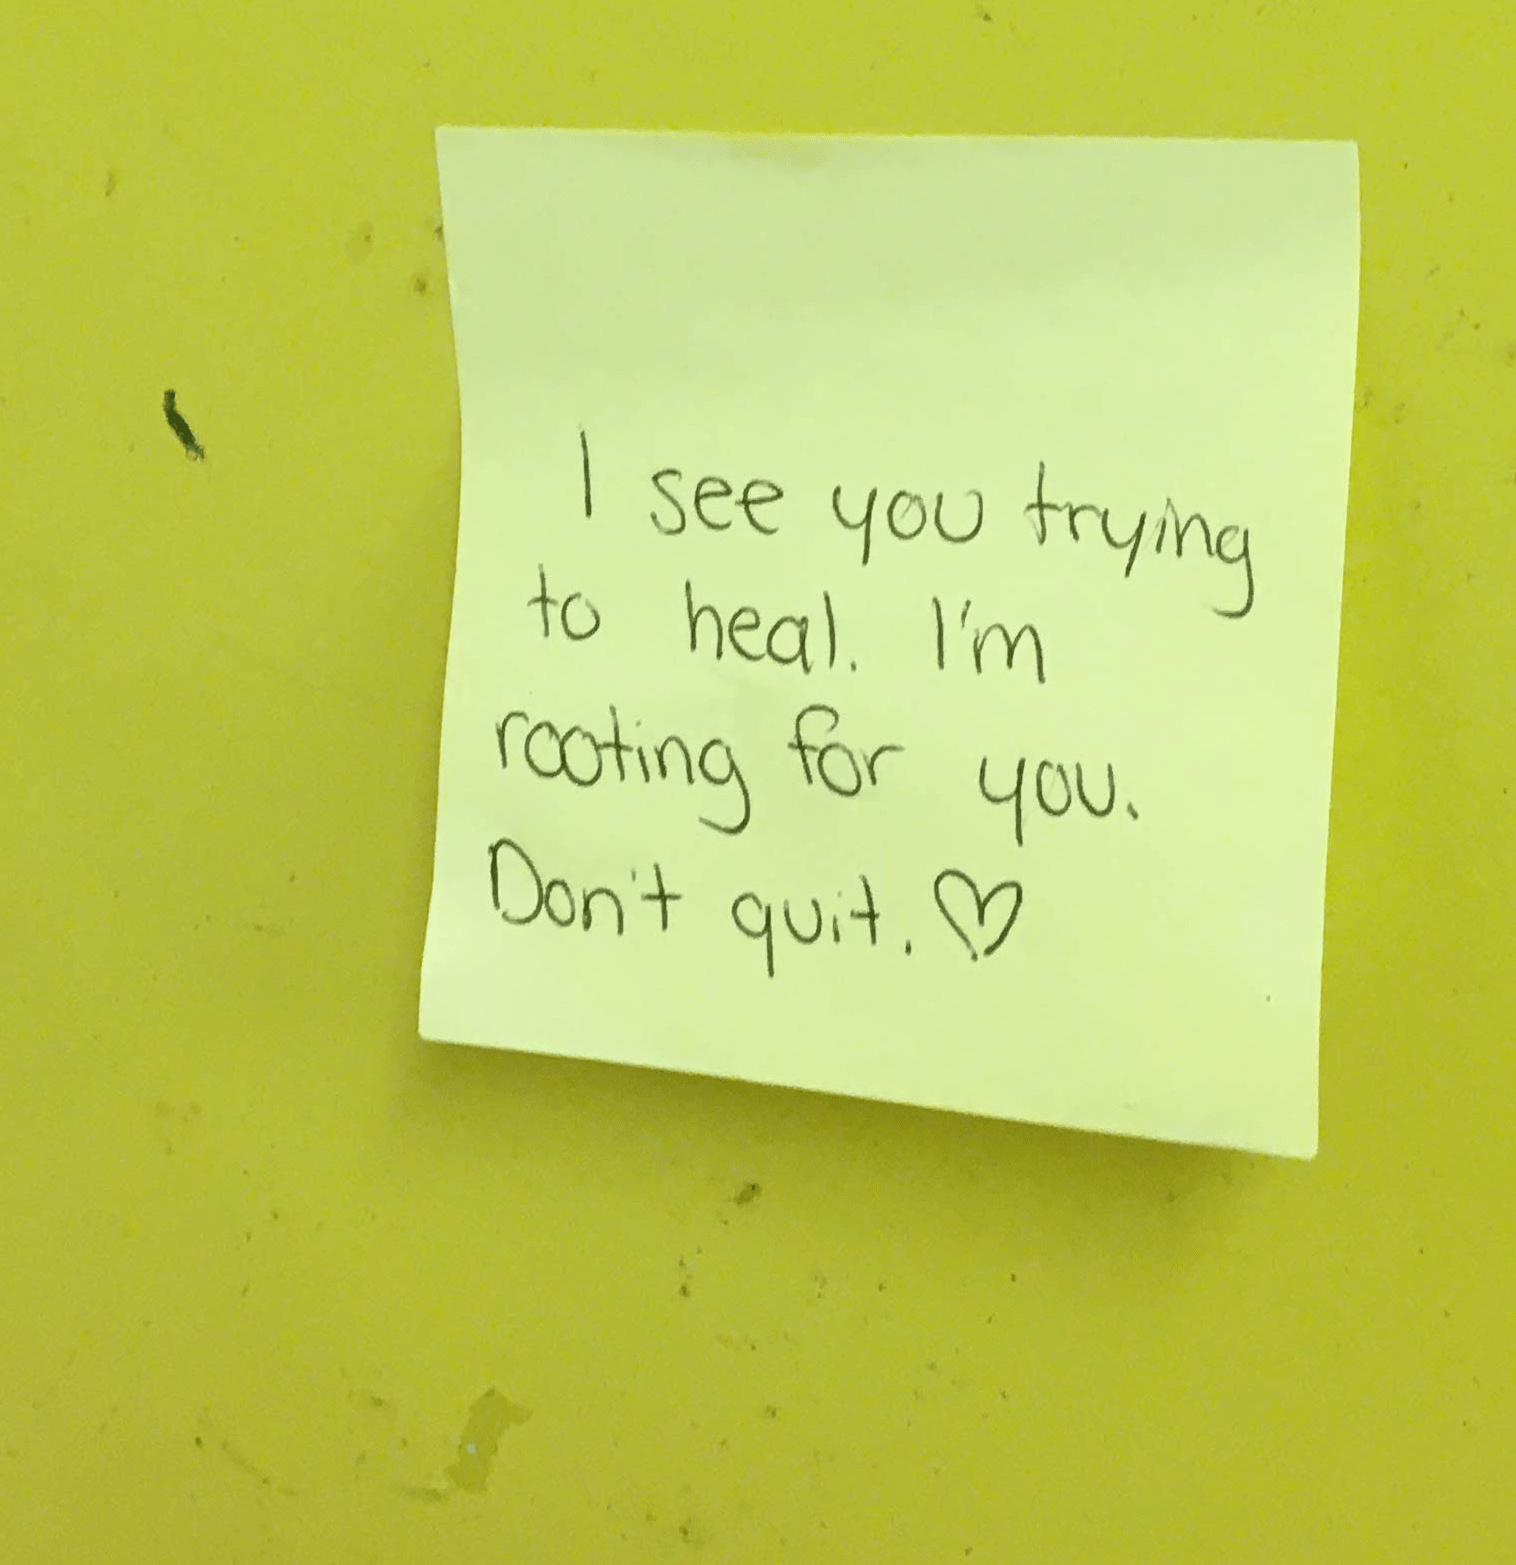 I see you trying
to heal. I'm
rooting for you.
Don't quit. ♡